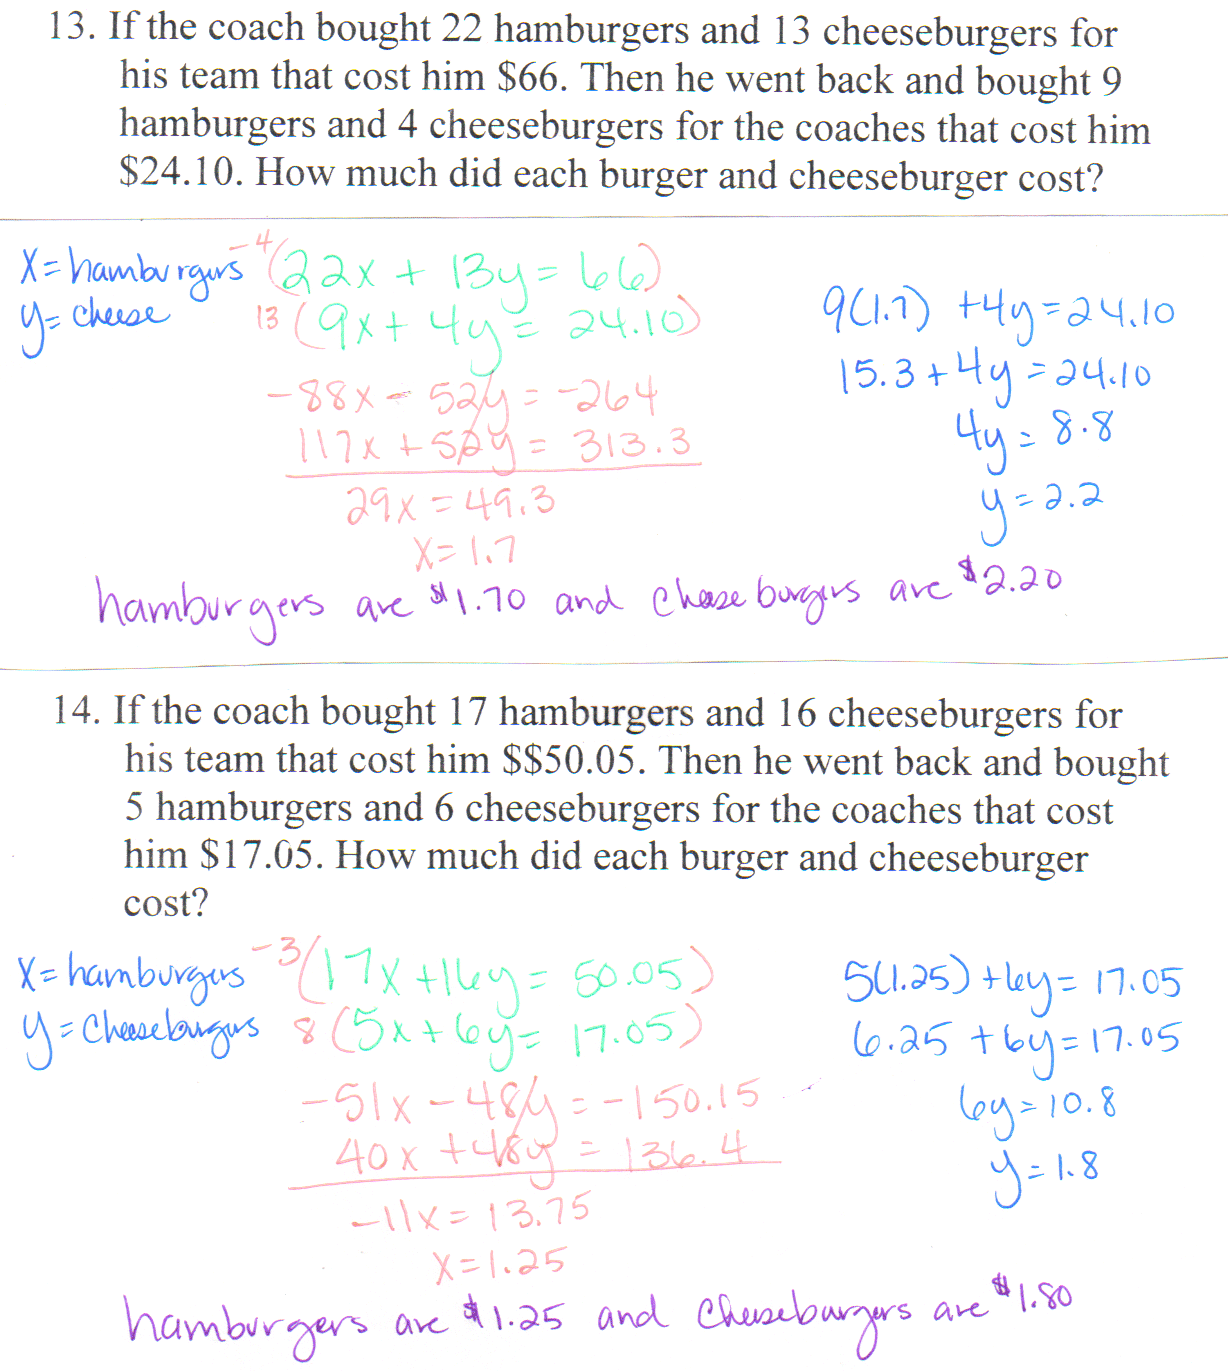 13. If the coach bought 22 hamburgers and 13 cheeseburgers for
his team that cost him $66. Then he went back and bought 9
hamburgers and 4 cheeseburgers for the coaches that cost him
$24.10. How much did each burger and cheeseburger cost?
x = hamburgers
y = cheese
-4(22x + 13y = 66)
13(9x + 4y = 24.10)
-88x - 52y = -264
117x + 52y = 313.3
29x = 49.3
x = 1.7
9(1.7) + 4y = 24.10
15.3 + 4y = 24.10
4y = 8.8
y = 2.2
hamburgers are $1.70 and cheeseburgers are $2.20
14. If the coach bought 17 hamburgers and 16 cheeseburgers for
his team that cost him $$50.05. Then he went back and bought
5 hamburgers and 6 cheeseburgers for the coaches that cost
him $17.05. How much did each burger and cheeseburger
cost?
x = hamburgers
y = Cheeseburgers
-3(17x + 16y = 50.05)
8(5x + 6y = 17.05)
-51x - 48y = -150.15
40x + 48y = 136.4
-11x = 13.75
x = 1.25
5(1.25) + 6y = 17.05
6.25 + 6y = 17.05
6y = 10.8
y = 1.8
hamburgers are $1.25 and Cheeseburgers are $1.80